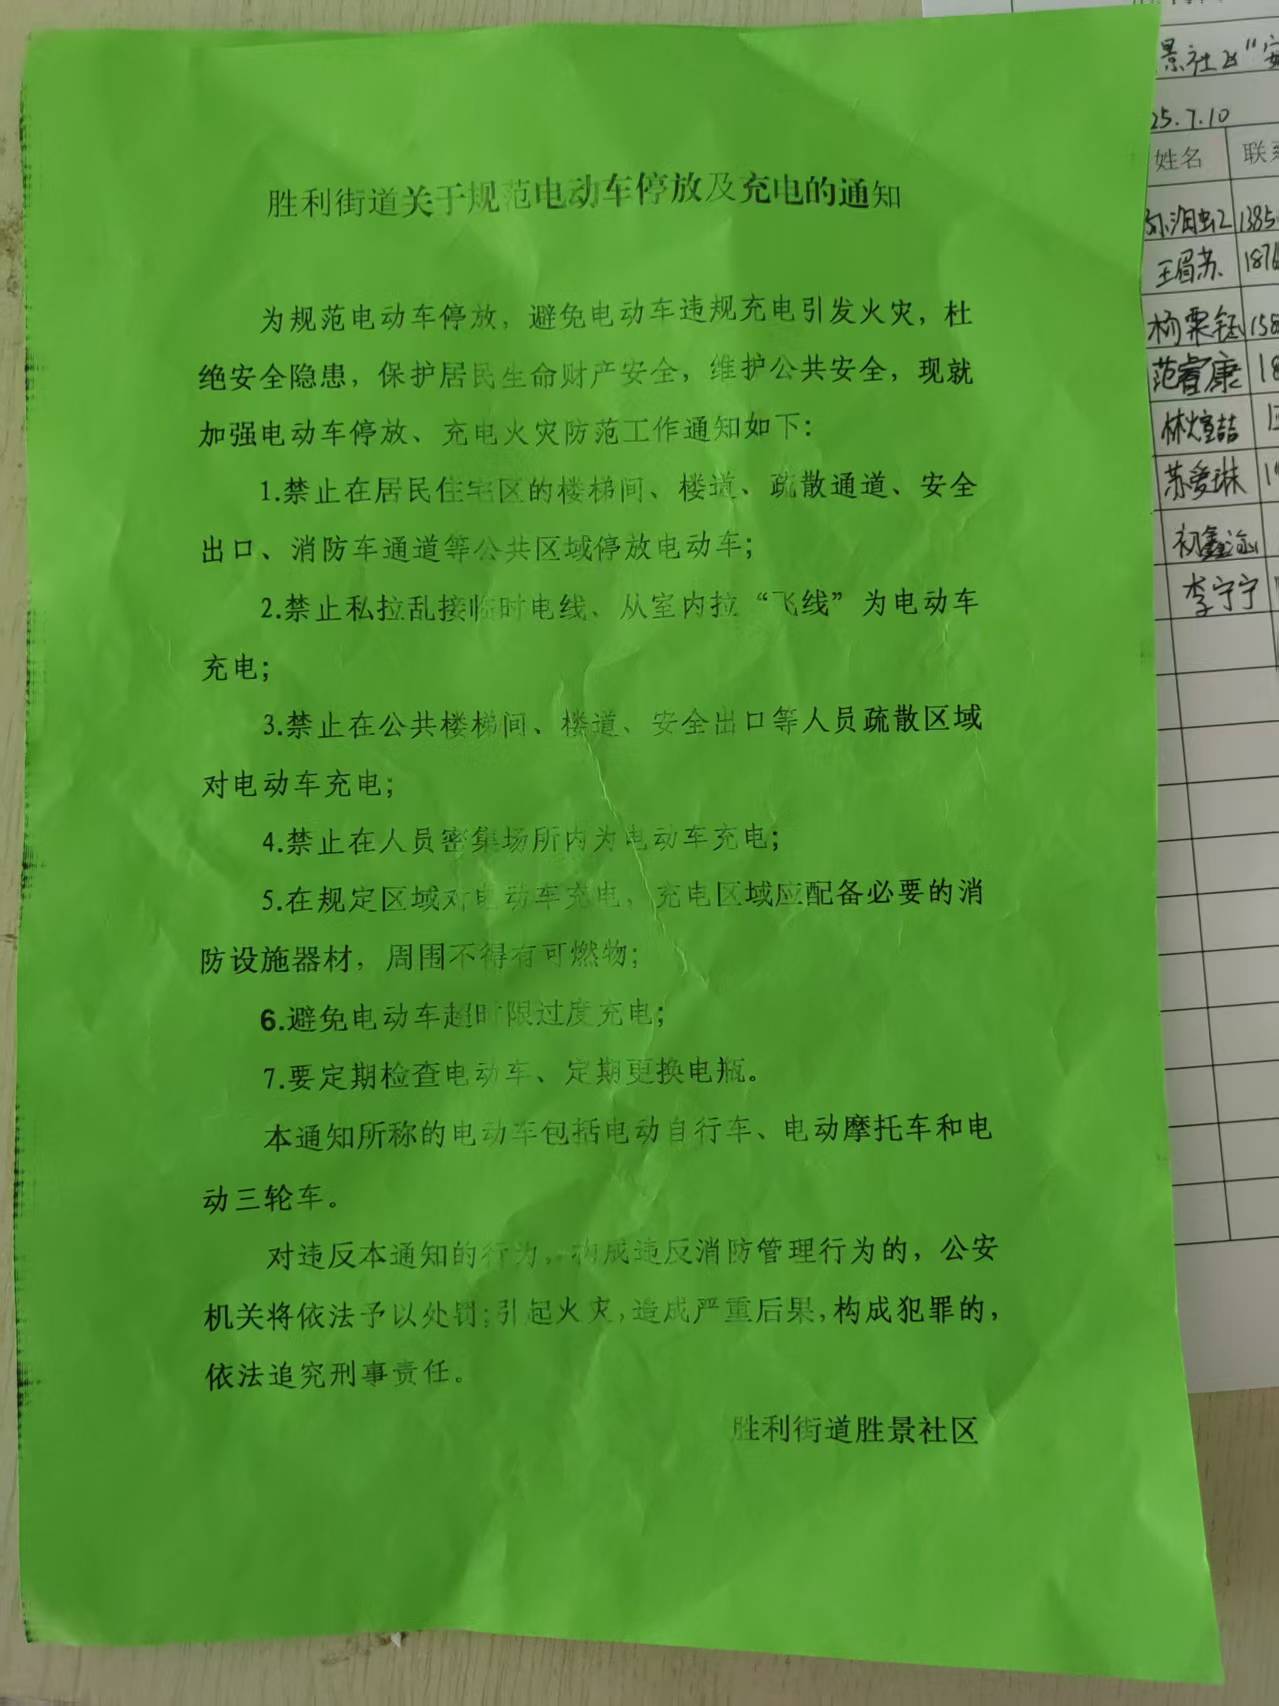 胜利街道关于规范电动车停放及充电的通知
为规范电动车停放，避免电动车违规充电引发火灾，杜
绝安全隐患，保护居民生命财产安全，维护公共安全，现就
加强电动车停放、充电火灾防范工作通知如下：
1.禁止在居民住宅区的楼梯间、楼道、疏散通道、安全
出口、消防车通道等公共区域停放电动车；
2.禁止私拉乱接临时电线、从室内拉“飞线”为电动车
充电；
3.禁止在公共楼梯间、楼道、安全出口等人员疏散区域
对电动车充电；
4.禁止在人员密集场所内为电动车充电；
5.在规定区域对电动车充电，充电区域应配备必要的消
防设施器材，周围不得有可燃物；
6.避免电动车超时限过度充电；
7.要定期检查电动车、定期更换电瓶。
本通知所称的电动车包括电动自行车、电动摩托车和电
动三轮车。
对违反本通知的行为，构成违反消防管理行为的，公安
机关将依法予以处罚;引起火灾,造成严重后果,构成犯罪的,
依法追究刑事责任。
胜利街道胜景社区
景社区“安
25.7.10
姓名 联系
1385
王眉苏 187
158
范睿康 18
苏爱琳
李宁宁